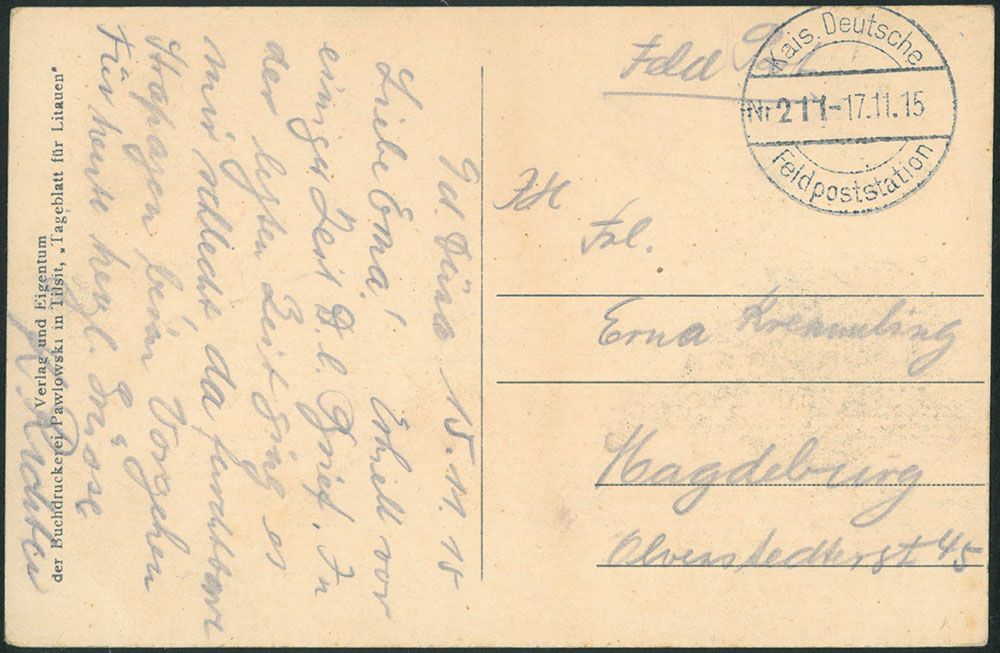 Feld Post
Kais. Deutsche
Nr 211-17.11.15
Feldpoststation
Frl.
Erna
Magdeburg
Olvenstedterst 45
15.11.15
Liebe Erna! Erhielt vor
einiger Zeit D. l. Brief. In
der letzten Zeit ging es
mir schlecht da furchtbare
Strapazen beim Vorgehen
Für heute herzl. Grüsse
Verlag und Eigentum
der Buchdruckerei Pawlowski in Tilsit, „Tageblatt für Litauen"